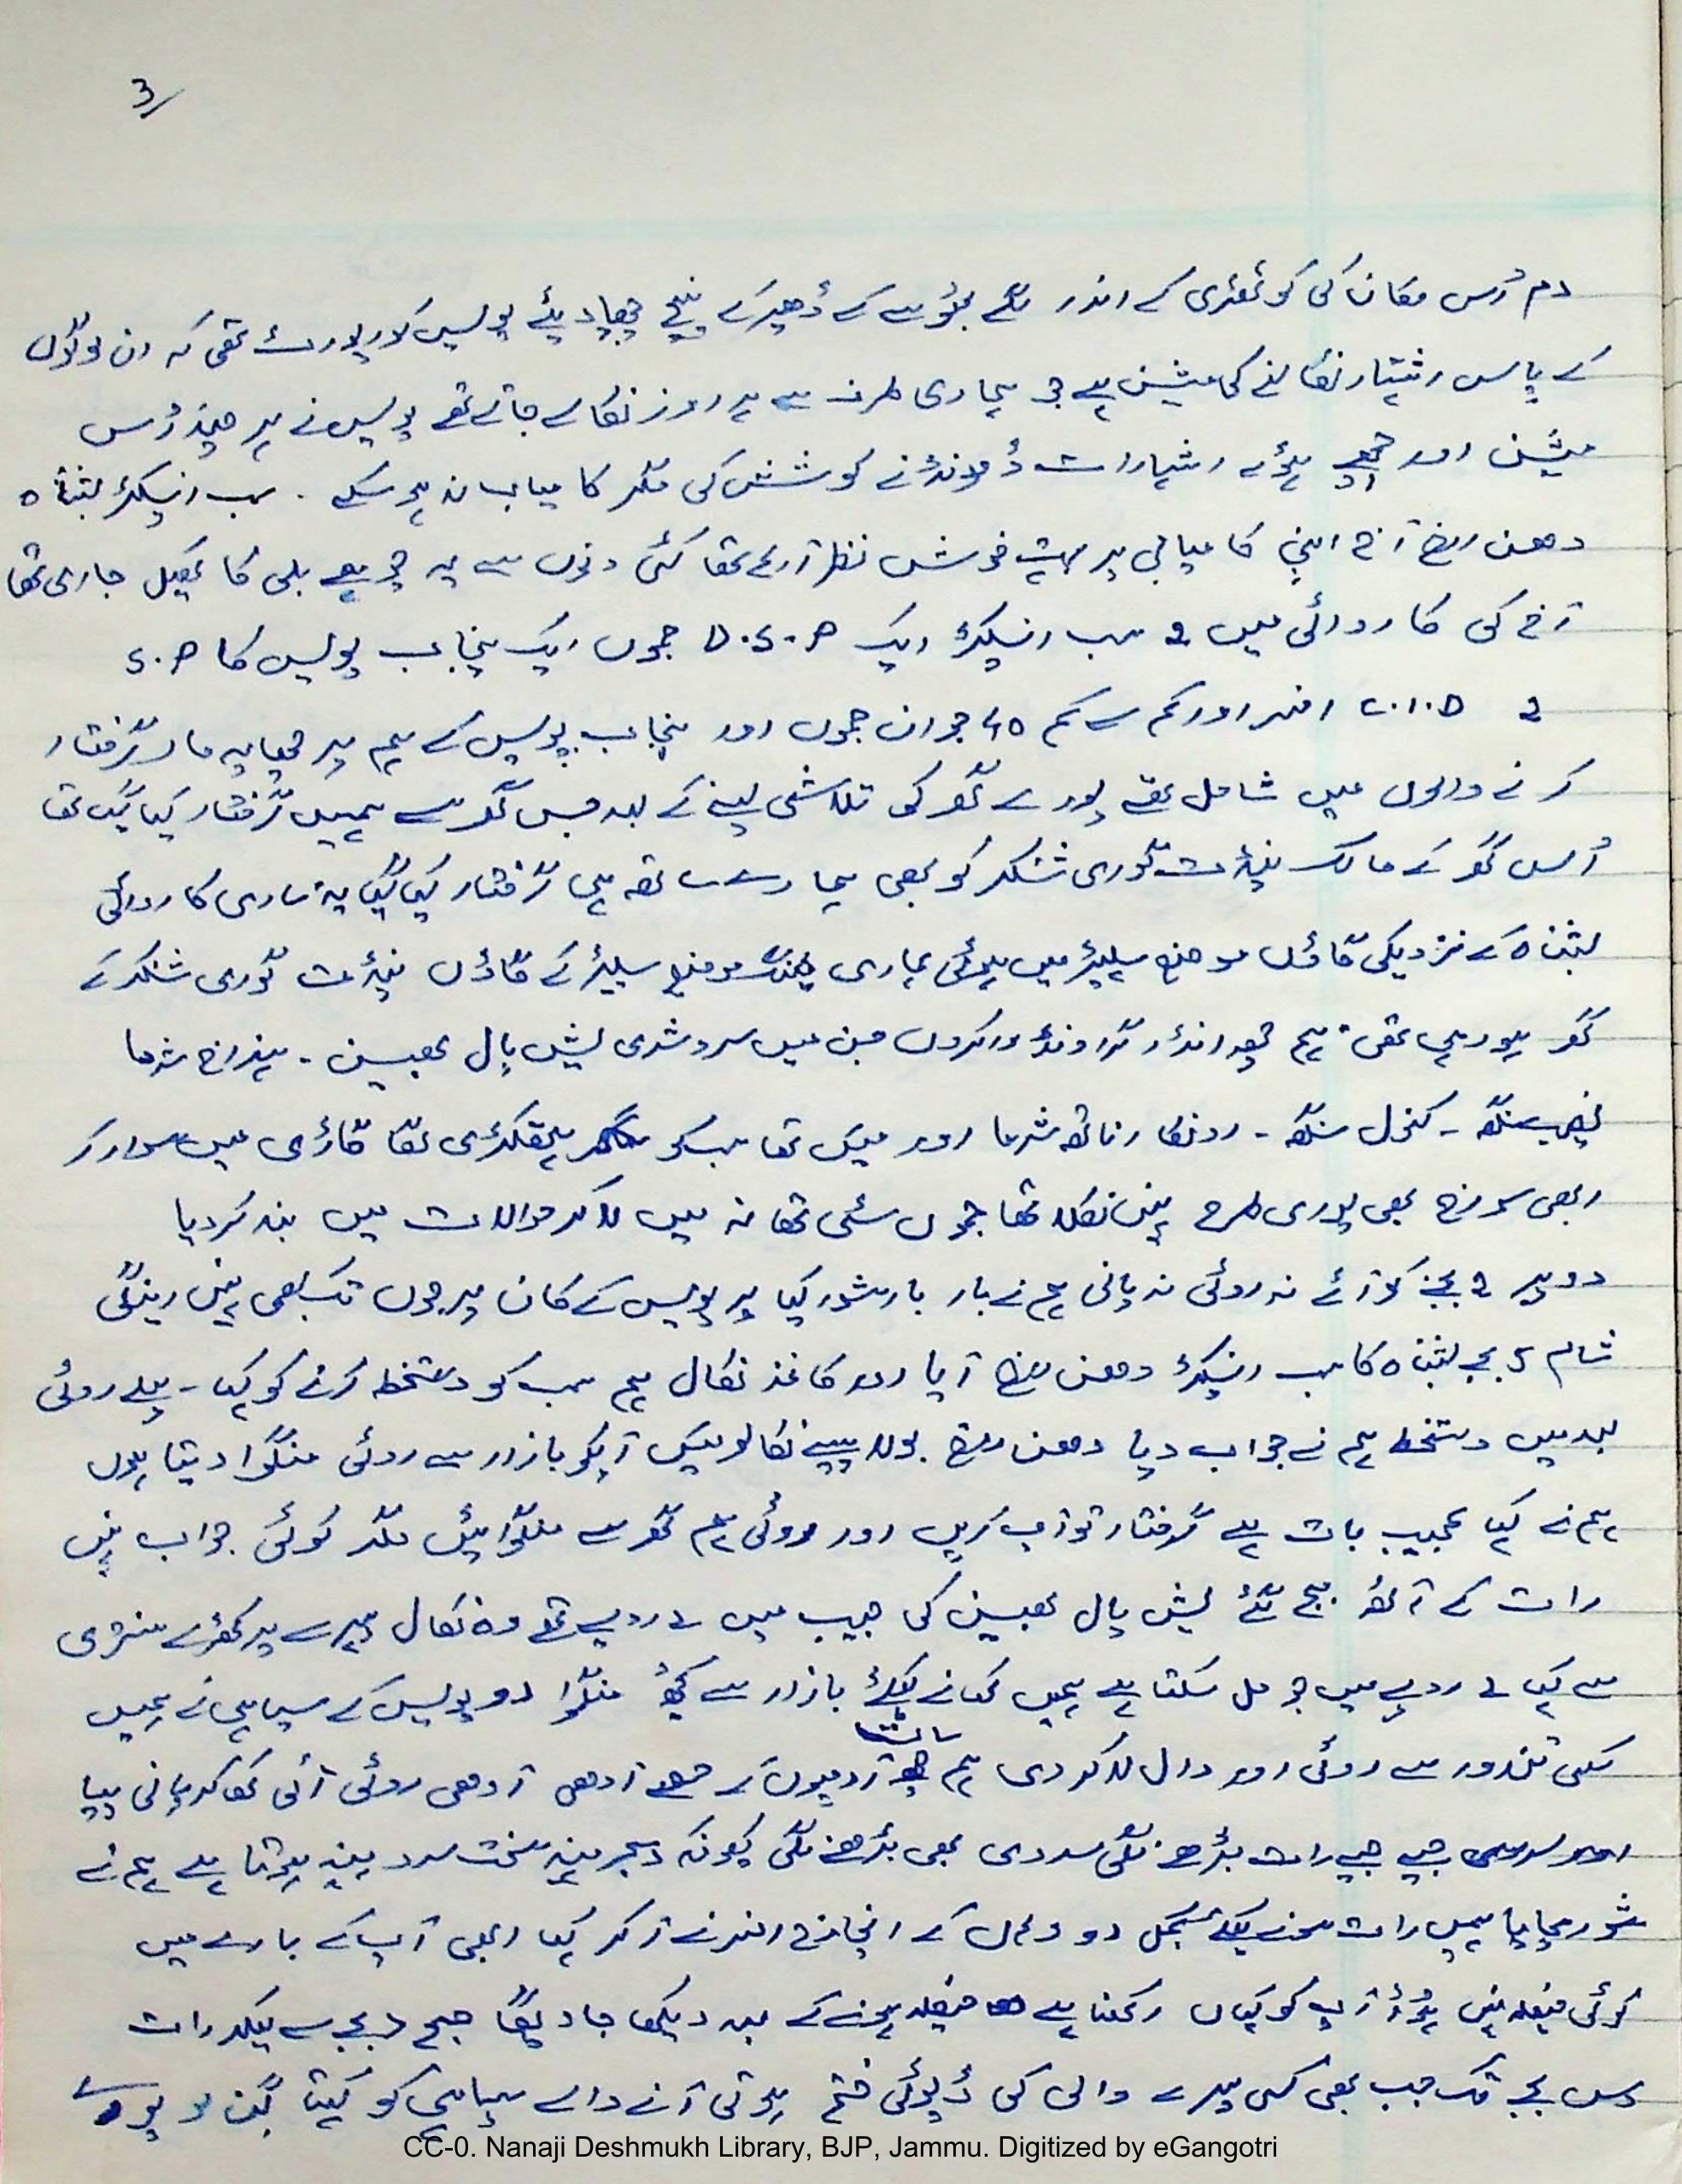 3/
دم اُس مکان کی کوٹھڑی کے اندر لگے بھوسے کے ڈھیر کے نیچے چھپا دیئے پولیس کو رپورٹ تھی کہ ان لوگوں
کے پاس اشتہار نکالنے کی مشین ہے جو ہماری طرف سے ہر روز نکالے جاتے تھے پولیس نے ہر چند اُس
مشین اور چھپے ہوئے اشتہارات ڈھونڈنے کوشش کی مگر کامیاب نہ ہو سکے . سب انسپکٹر بشناہ
دھن راج آج اپنی کامیابی پر بہت خوش نظر آرہے تھا کئی دنوں سے یہ چوہے بلی کا کھیل جاری تھا
آج کی کاروائی میں 2 سب انسپکٹر ایک D.S.P جموں ایک پنجاب پولیس کا S.P
2 C.I.D افسر اور کم سے کم 45 جوان جموں اور پنجاب پولیس کے ہم پر چھاپہ مار گرفتار
کرنے والوں میں شامل تھے پورے گھر کی تلاشی لینے کے بعد جس گھر سے ہمیں گرفتار کیا گیا تھا
اُس گھر کے مالک پنڈت گوری شنکر کو بھی ہمارے ساتھ ہی گرفتار کیا گیا یہ ساری کاروائی
بشناہ کے نزدیکی گاؤں موضع سلیڑ میں ہوئی ہماری میٹنگ موضع سلیڑ کے گاؤں پنڈت گوری شنکر کے
گھر ہو رہی تھی ہم چھ انڈر گراونڈ ورکروں جن میں سروشری یش پال بھسین - ہنسراج شرما
سنگھ - کنول سنگھ - اونکار ناتھ شرما اور میں تھا سبکو ہتھکڑی لگا گاڑی میں سوار کر
ابھی سورج بھی پوری طرح نہیں نکلا تھا جموں سٹی تھانہ میں لا کر حوالات میں بند کر دیا
دوپہر 2 بجنے کو آئے نہ روٹی نہ پانی ہم نے بار بار شور کیا پر پولیس کے کان پر جوں تک بھی نہیں رینگی
شام 5 بجے بشناہ کا سب انسپکٹر دھن راج آیا اور کاغذ نکال ہم سب کو دستخط کرنے کو کہا - پہلے روٹی
بعد میں دستخط ہم نے جواب دیا دھن راج بولا پیسے نکالو میں آپکو بازار سے روٹی منگوا دیتا ہوں
ہم نے کہا عجیب بات ہے گرفتار تو آپ کریں اور روٹی ہم گھر سے منگوائیں مگر کوئی جواب نہیں
رات کے آٹھ بج گئے یش پال بھسین کی جیب میں 2 روپے تھے وہ نکال پہرے پر کھڑے سنتری
سے کہا 2 روپے میں جو مل سکتا ہے ہمیں کھانے کیلئے بازار سے کچھ منگوا دو پولیس کے سپاہی نے ہمیں
کسی تندور سے روٹی اور دال لا کر دی ہم سات آدمیوں کے حصے آدھی آدھی روٹی آئی کھا کر پانی پیا
جیسے جیسے رات بڑھنے لگی سردی بھی بڑھنے لگی کیونکہ دسمبر مہینہ سخت سرد مہینہ ہوتا ہے ہم نے
شور مچایا ہمیں رات سونے کیلئے کمبل دو وہاں کے انچارج افسر نے آ کر کہا ابھی آپ کے بارے میں
کوئی فیصلہ نہیں ہوا آپ کو کہاں رکھنا ہے فیصلہ ہونے کے بعد دیکھا جاویگا صبح 5 بجے سے لیکر رات
دس بجے تک جب بھی کسی پہرے والی کی ڈیوٹی ختم ہوتی آنے والے سپاہی کو کہتا گن لو پورے
CC-0. Nanaji Deshmukh Library, BJP, Jammu. Digitized by eGangotri